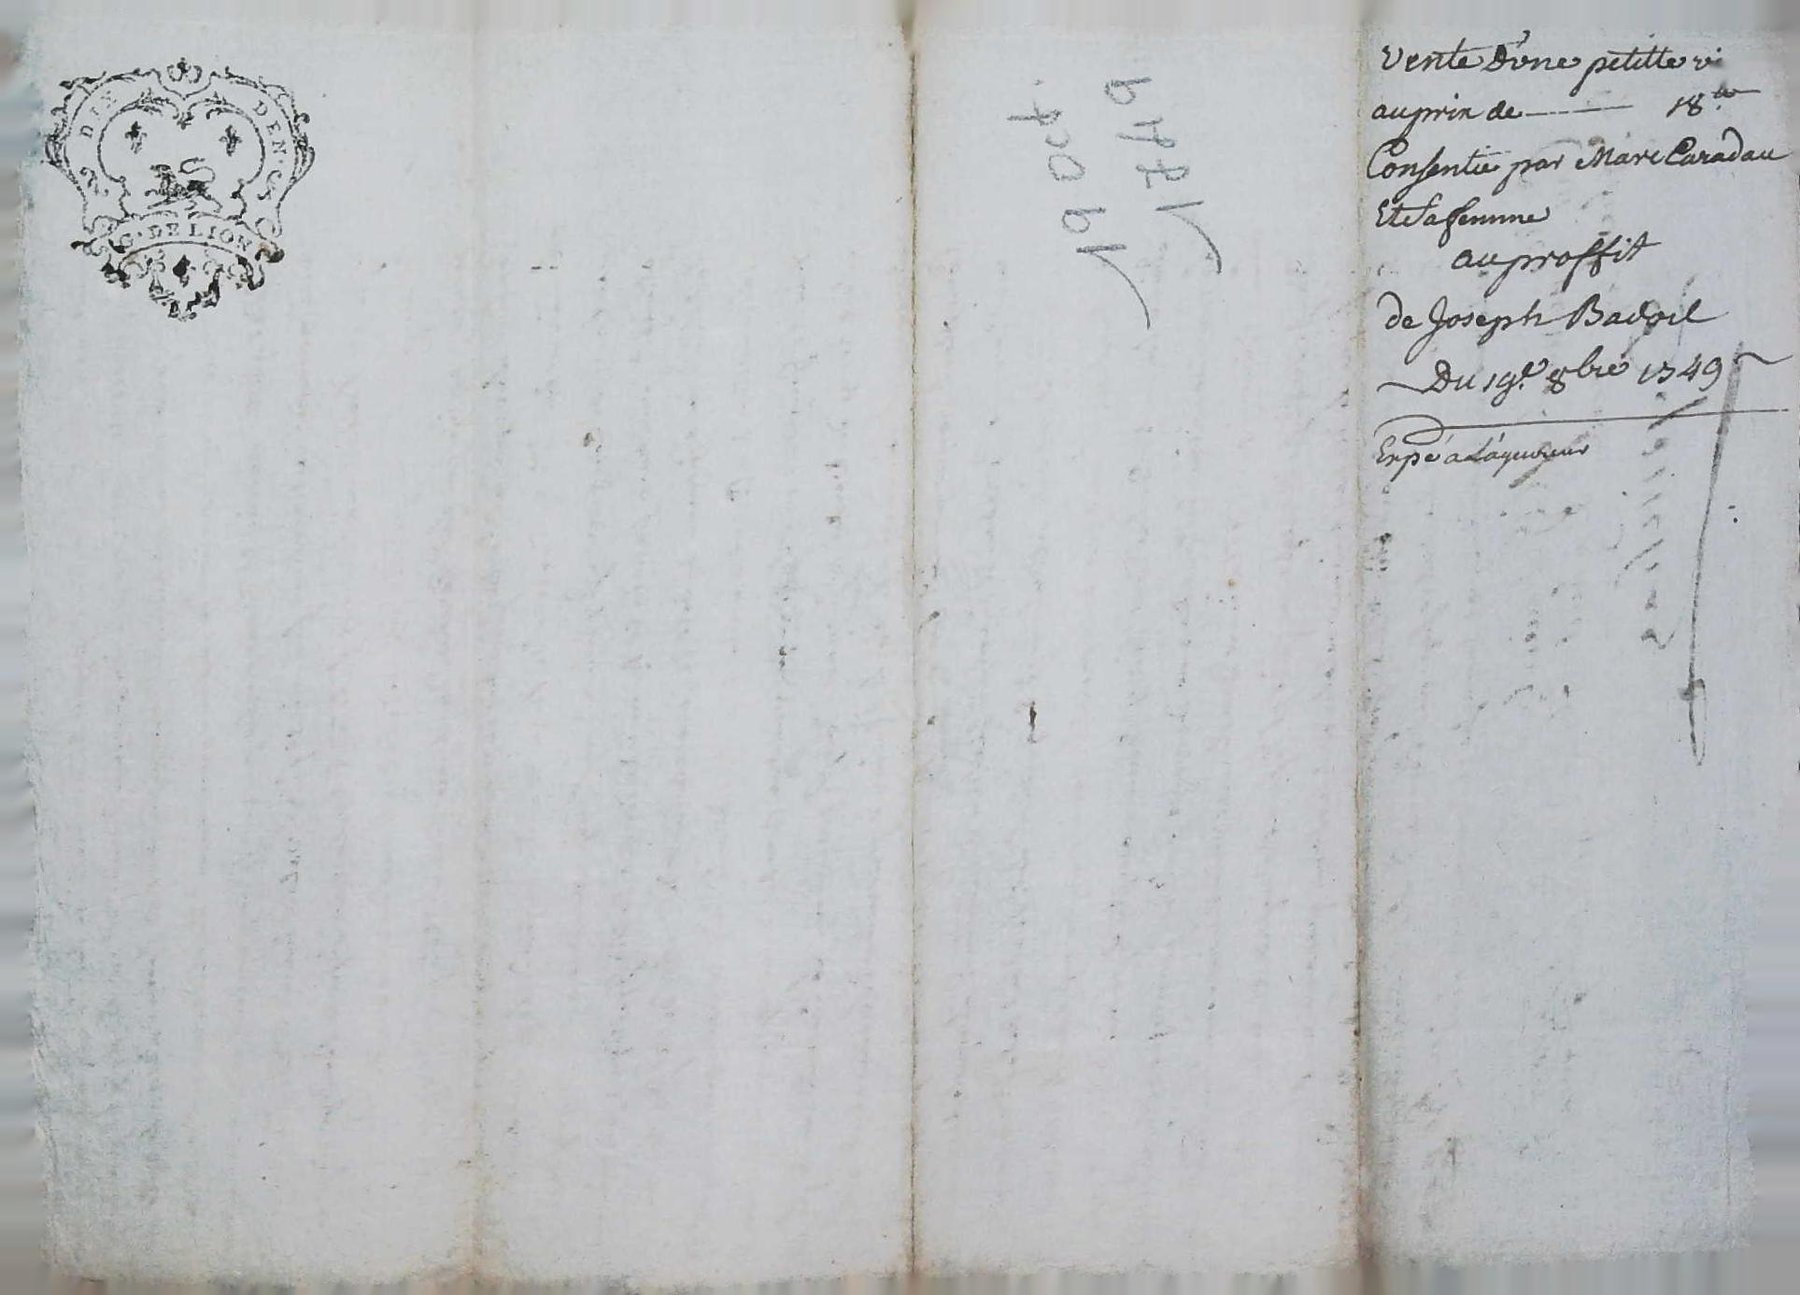 DIX DEN.
G. DE LION
19 oct
1749
Vente D'une petitte
au prix de 18
Consentie par Marc Caradau
Et sa femme
au proffit
de Joseph Badoil
Du 19e 8bre 1749
Expé a L'aquereur